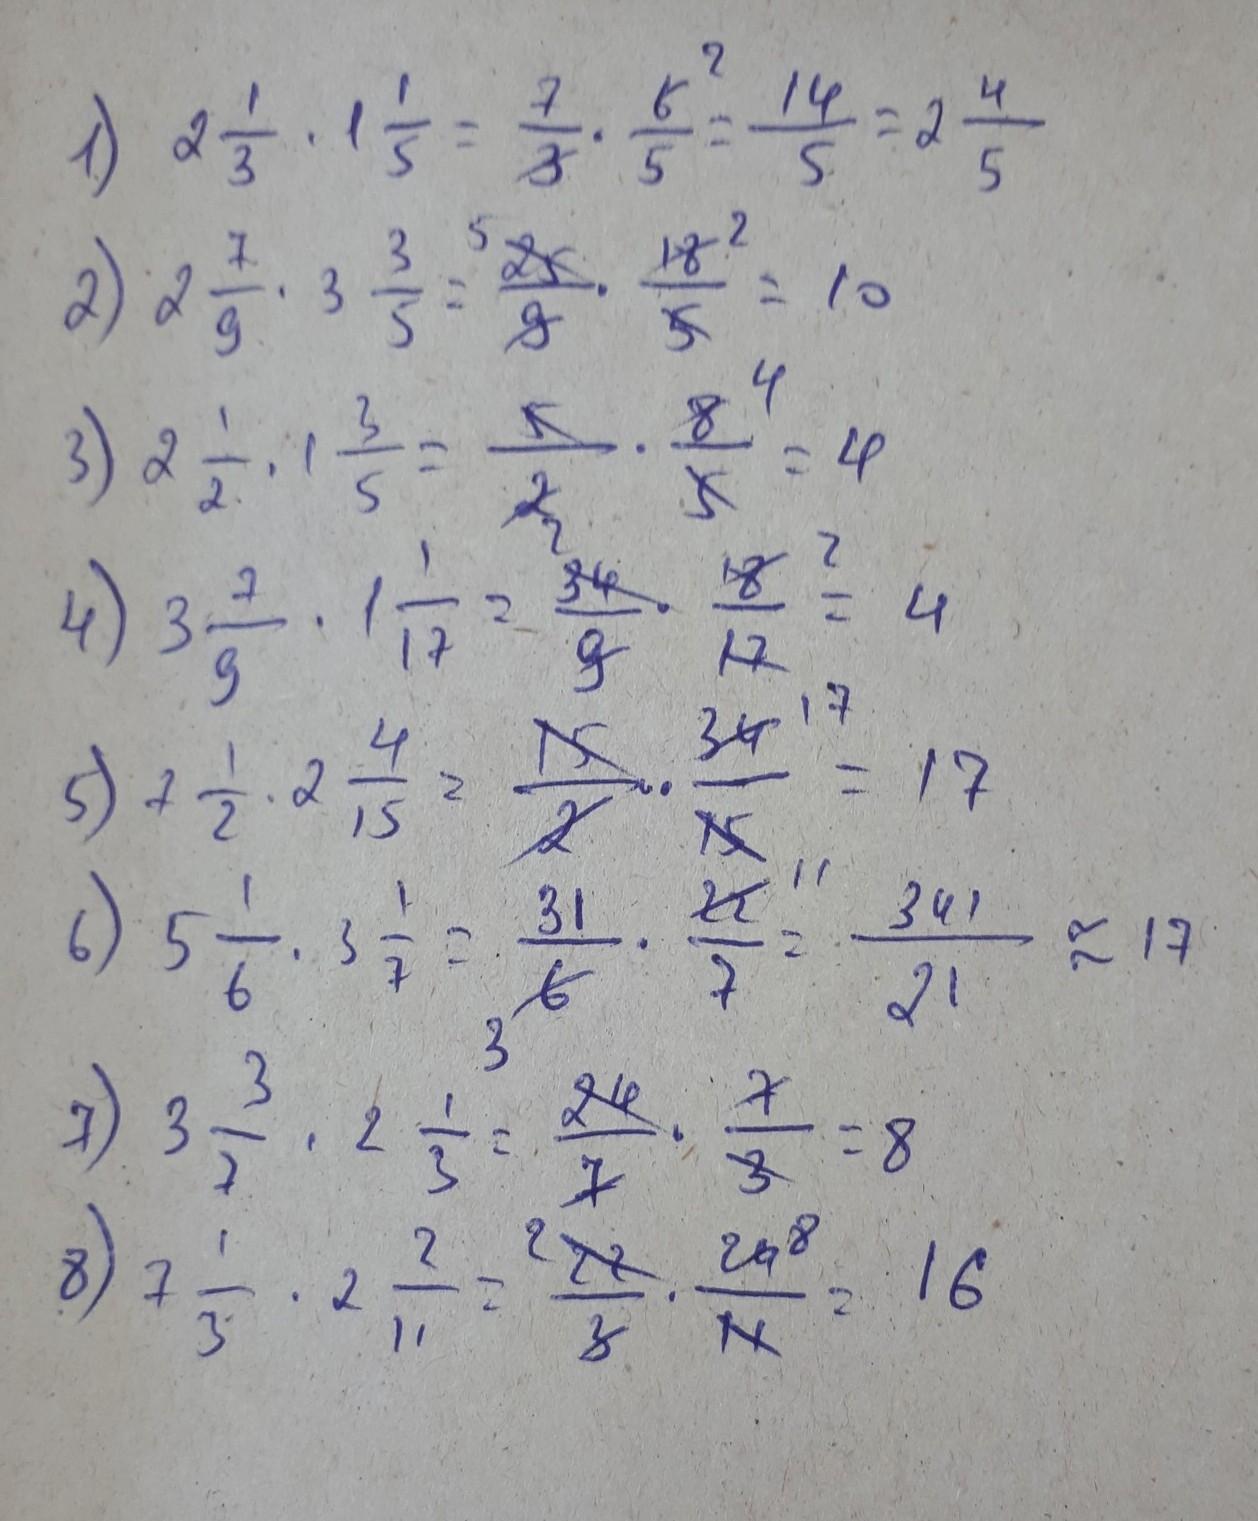 1) 2 1/3 · 1 1/5 = 7/3 · 6/5 2 = 14/5 = 2 4/5
2) 2 7/9 · 3 3/5 = 5 25/9 · 18/5 2 = 10
3) 2 1/2 · 1 3/5 = 5/2 · 8/5 4 = 4
4) 3 7/9 · 1 1/17 = 2 34/9 · 18/17 2 = 4
5) 7 1/2 · 2 4/15 = 15/2 · 34/15 17 = 17
6) 5 1/6 · 3 1/7 = 31/6 3 · 22/7 11 = 341/21 ≈ 17
7) 3 3/7 · 2 1/3 = 24/7 · 7/3 = 8
8) 7 1/3 · 2 2/11 = 2 22/3 · 24/11 8 = 16